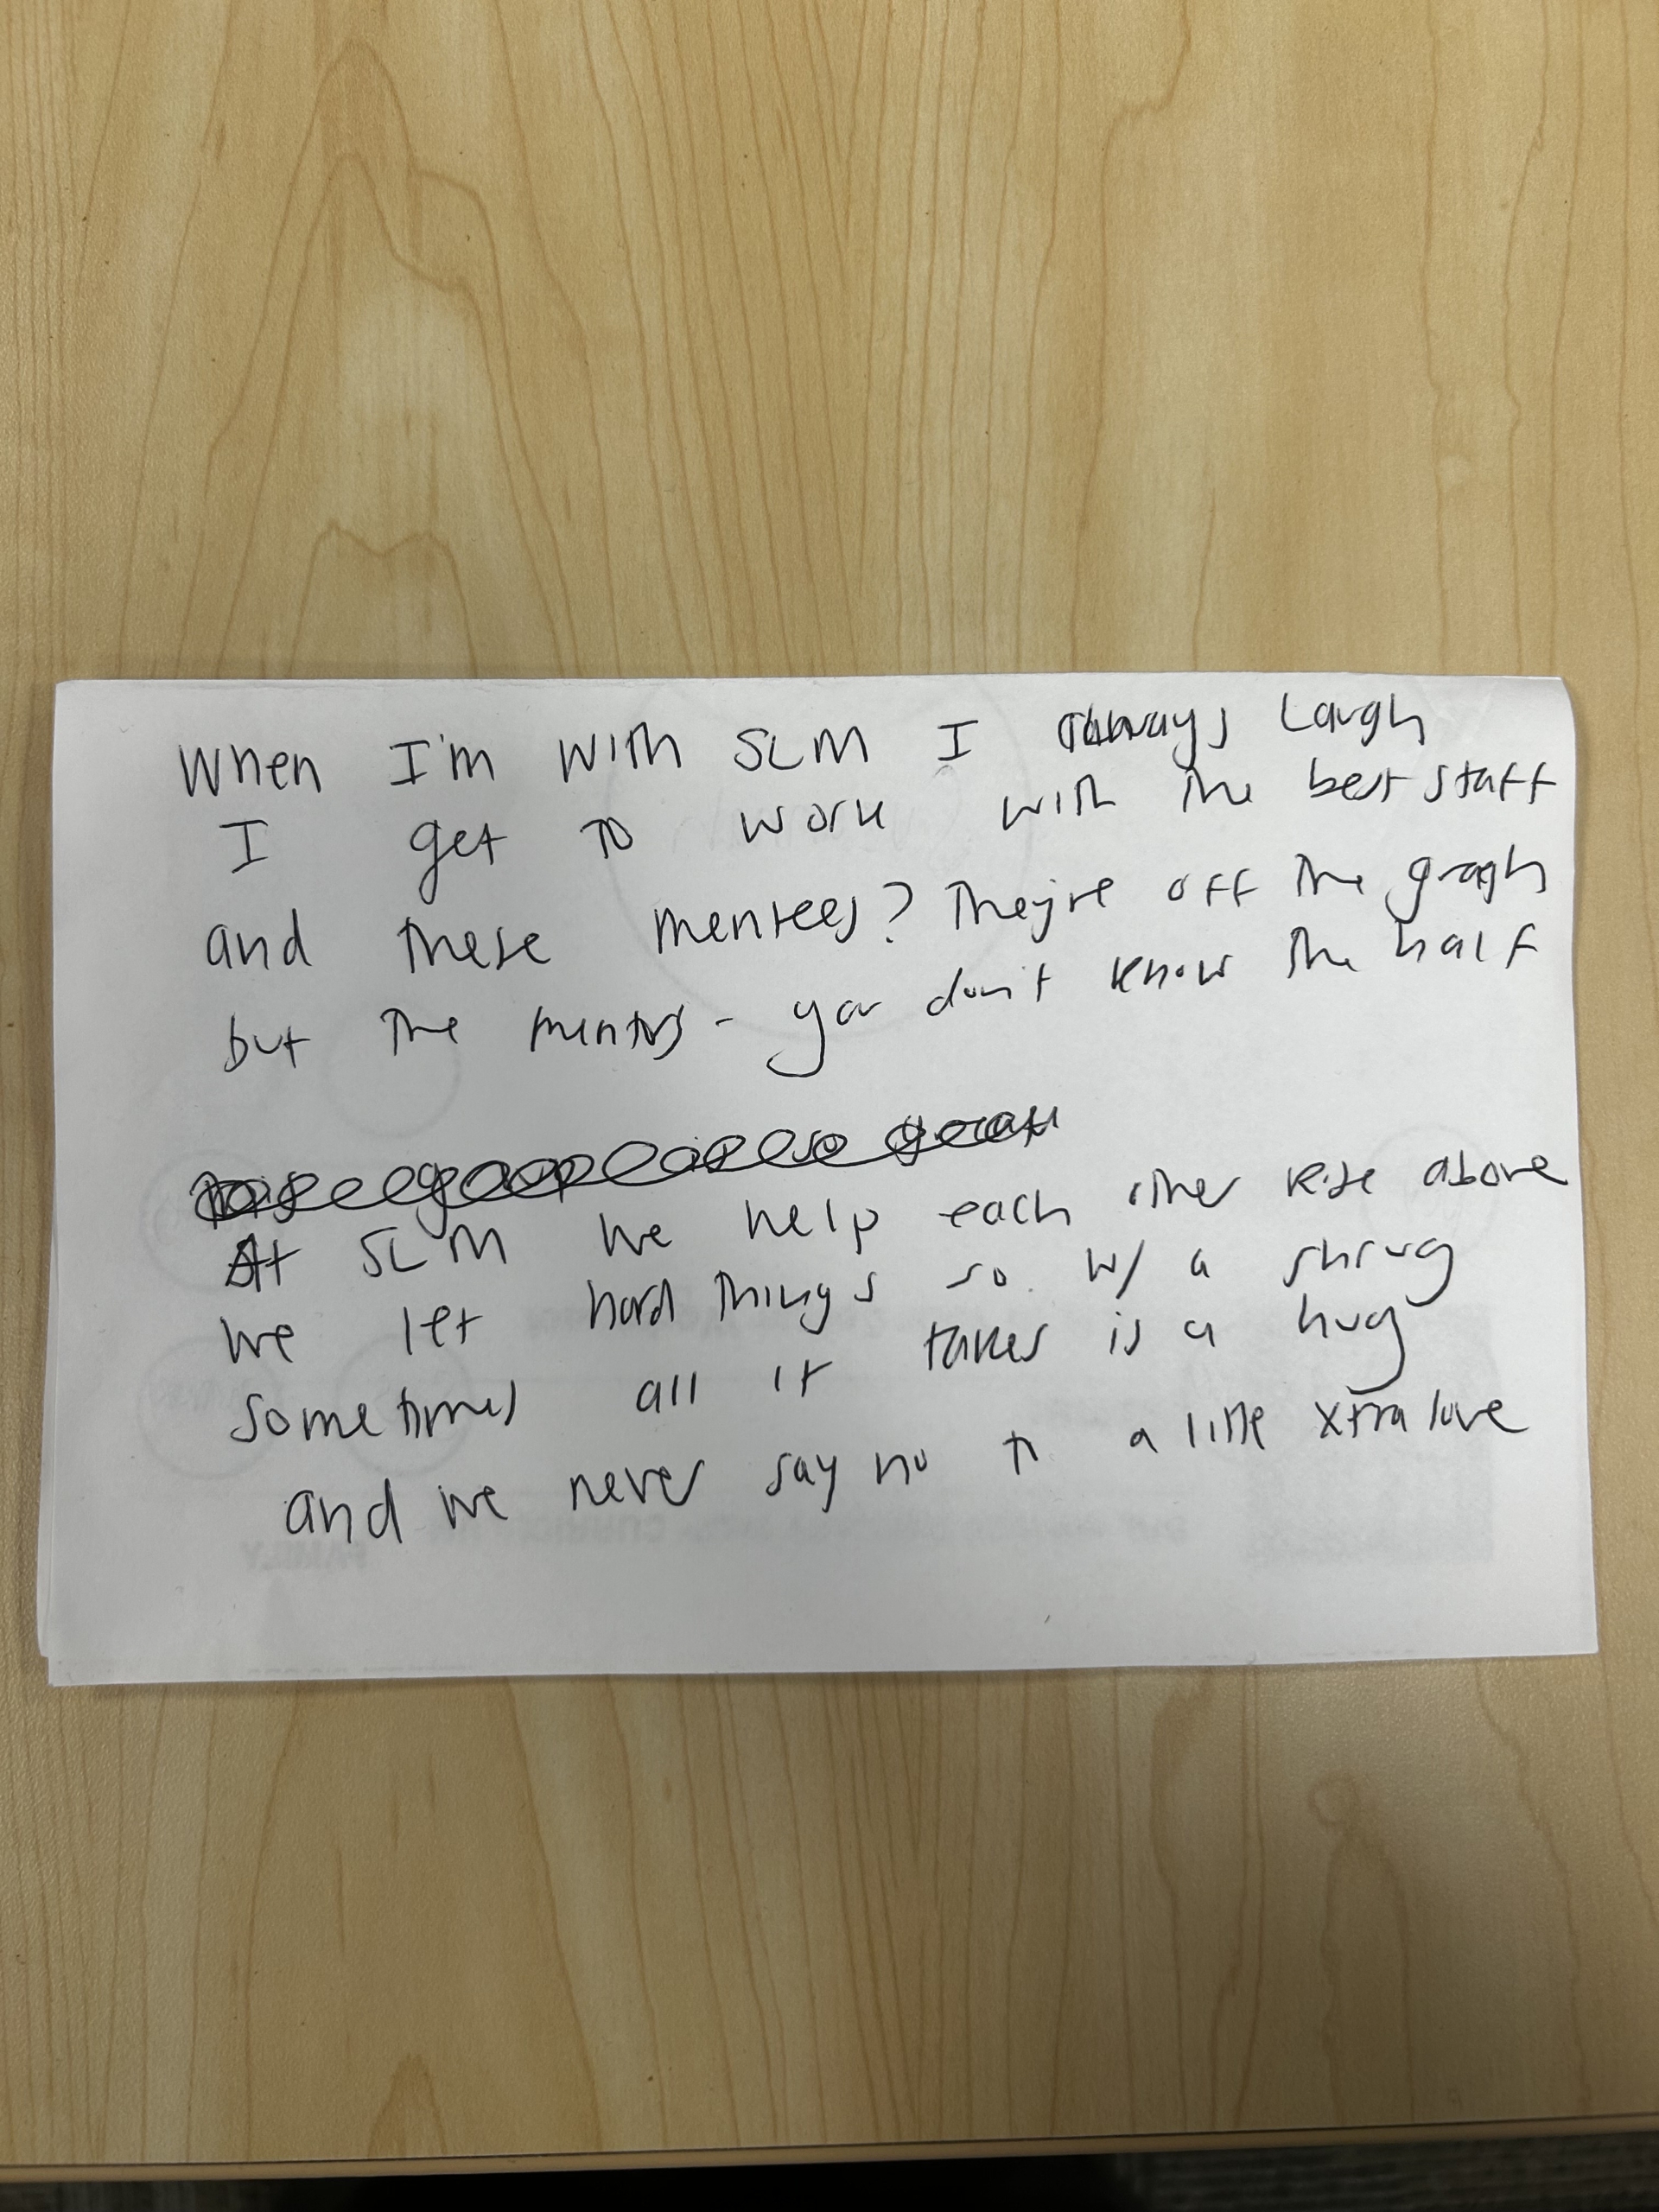 When I'm with SLM I always laugh
I get to work with the best staff
and these mentees? They're off the graph
but the mentors - you don't know the half
this group is so great
At SLM we help each other rise above
we let hard things go w/ a shrug
sometimes all it takes is a hug
and we never say no to a little xtra love